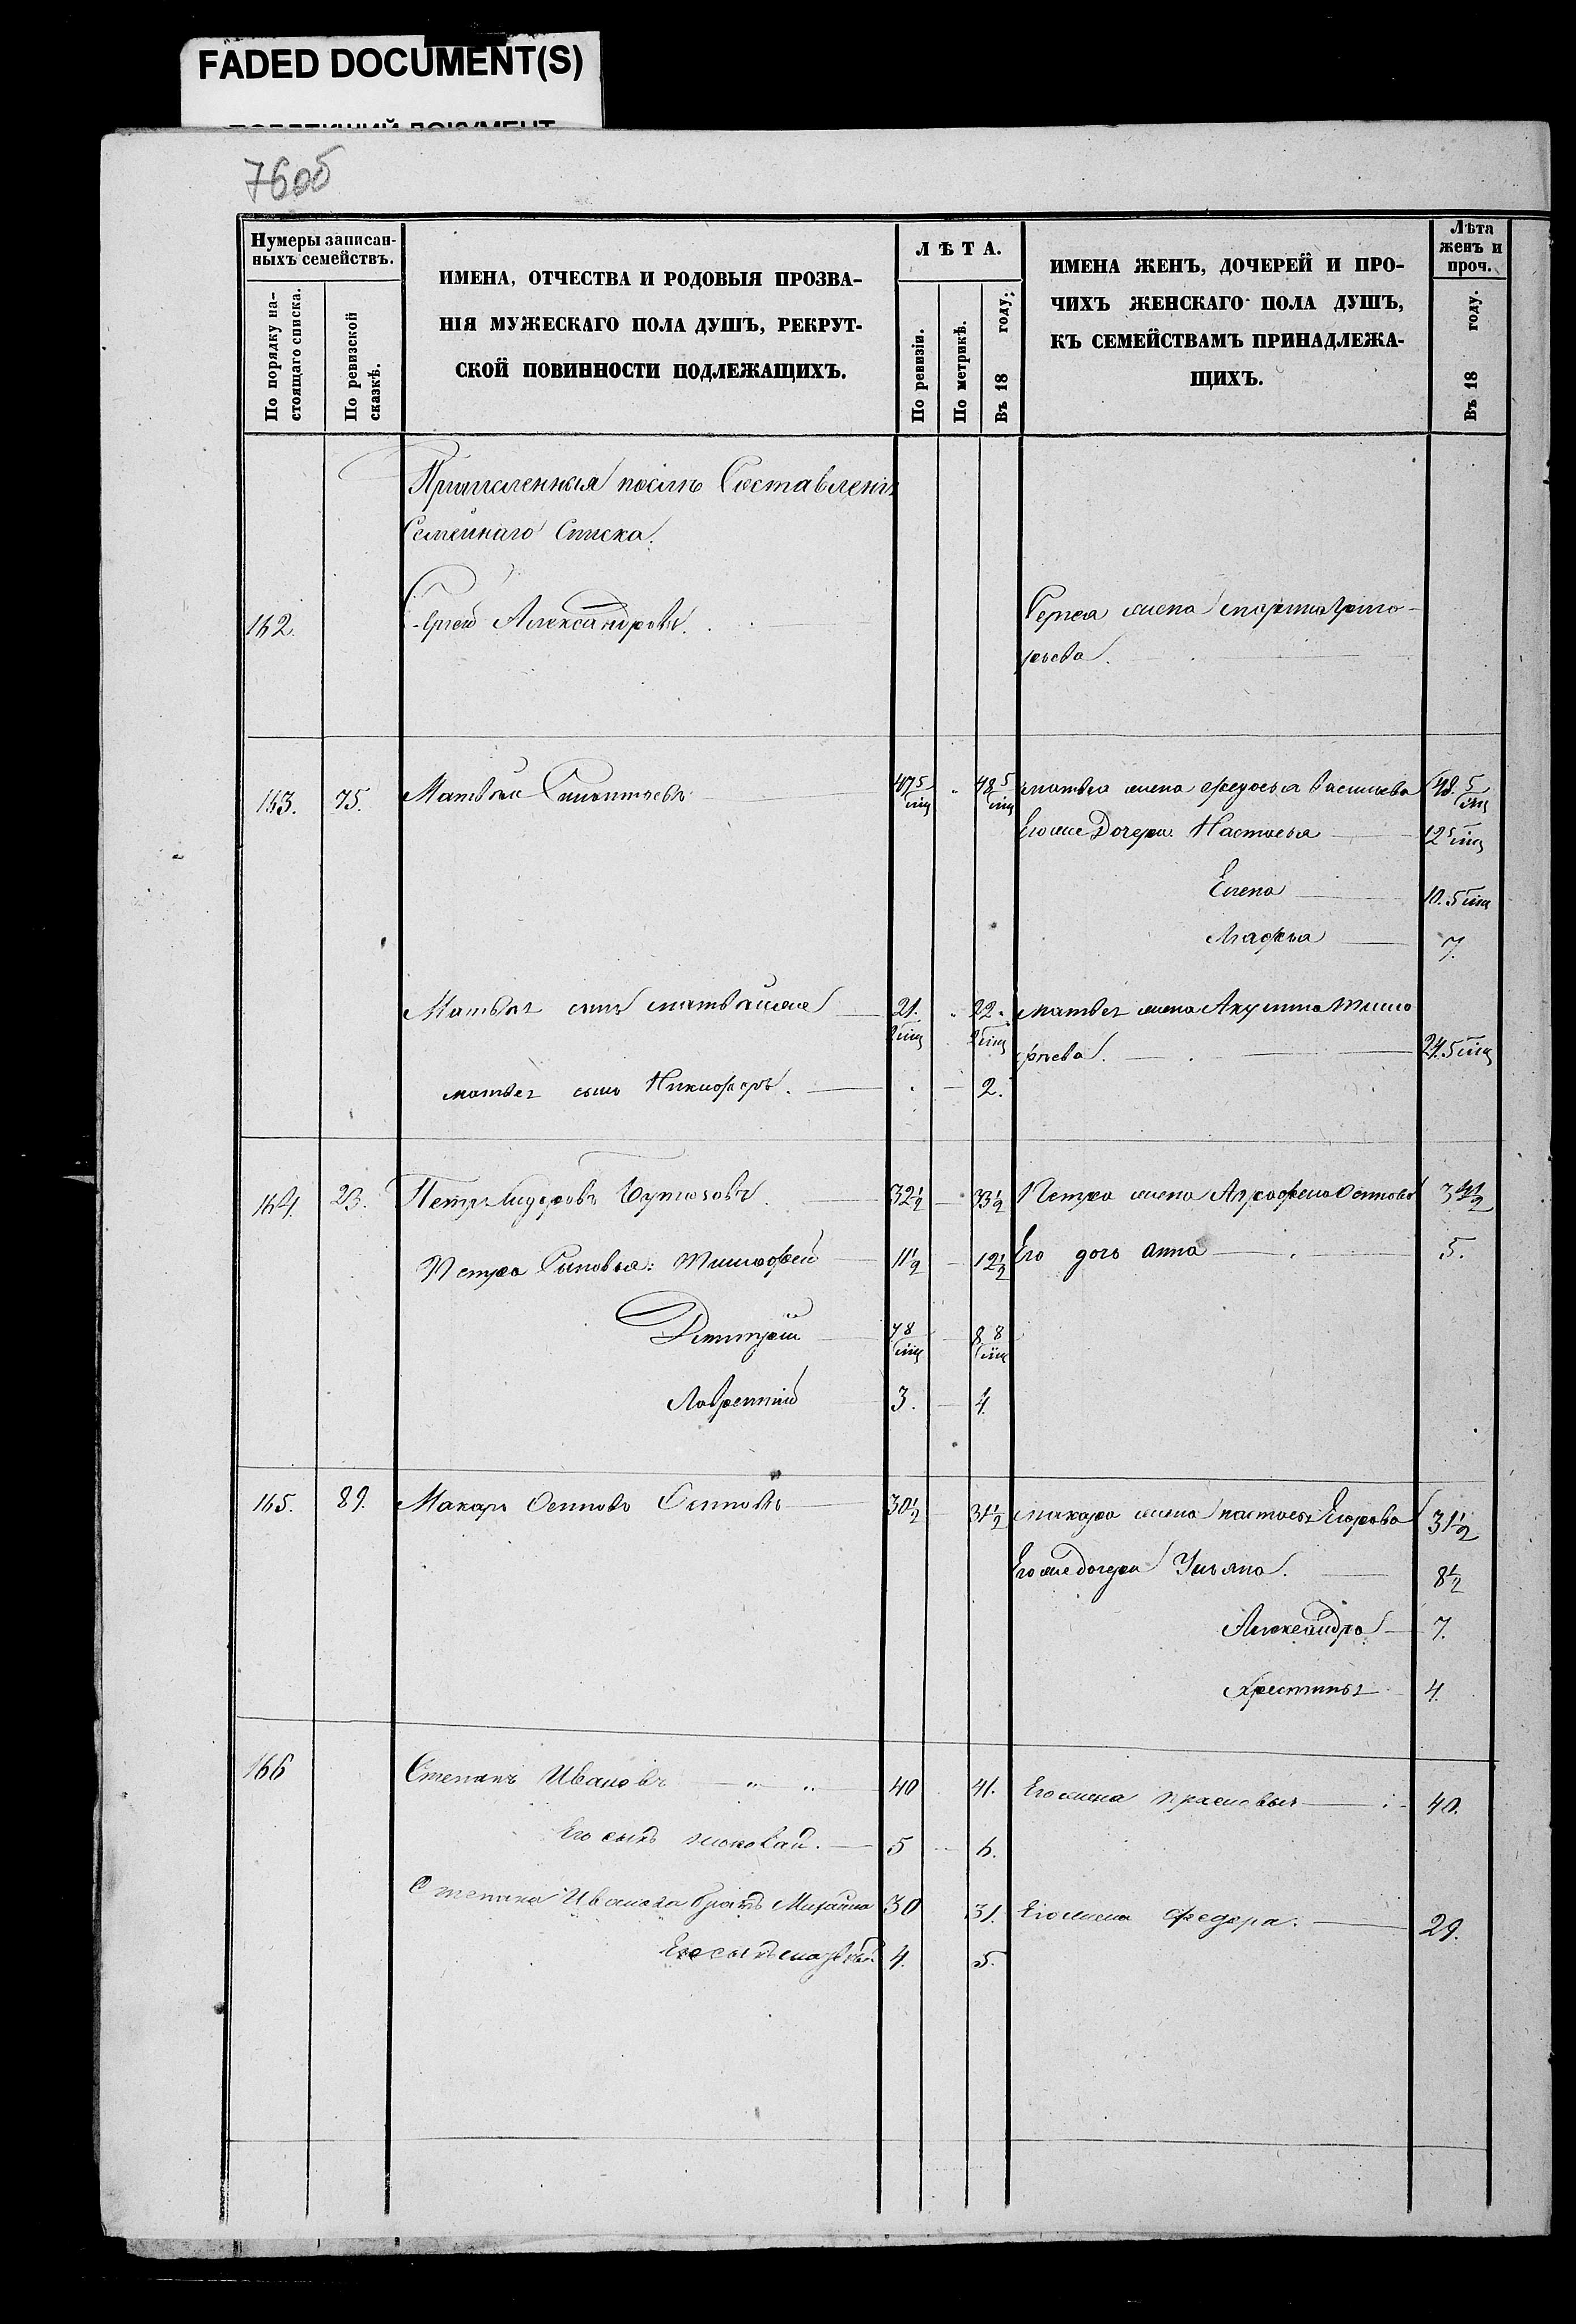 FADED DOCUMENT(S)
76об
Нумеры записан-
ныхъ семействъ.
По порядку на-
стоящаго списка.
По ревизской
сказкѣ.
ИМЕНА, ОТЧЕСТВА И РОДОВЫЯ ПРОЗВА-
НІЯ МУЖЕСКАГО ПОЛА ДУШЪ, РЕКРУТ-
СКОЙ ПОВИННОСТИ ПОДЛЕЖАЩИХЪ.
ЛѢТА.
По ревизіи.
По метрикѣ.
Въ 18 году.
ИМЕНА ЖЕНЪ, ДОЧЕРЕЙ И ПРО-
ЧИХЪ ЖЕНСКАГО ПОЛА ДУШЪ,
КЪ СЕМЕЙСТВАМЪ ПРИНАДЛЕЖА-
ЩИХЪ.
Лѣта
женъ и
проч.
Въ 18 году.
Причисленныя послѣ Составленія
Семейнаго Списка.
162. Сергей Александровъ. Сергея жена Марша Григо-
рьева.
163. 75. Матвѣй 47 5/мц 48 5/мц матвея жена Федосья Васильева 48. 5/мц
Его же Дочери Настасья 12 5 мц
Елена 10. 5 мц
Агафья 7.
Матвея сынъ матвей же 21. 2 мц 22. 2 мц матвея жена Акулина Тимо
фѣева. 24. 5 мц
матвея сынъ Никифоръ. 2.
164. 23. Петръ Сидоровъ 32 1/2 33 1/2 Петра жена Аграфена Осипова 34 1/2
Петра Сыновья: Тимофей 11 1/2 12 1/2 Его дочь Анна 5.
Дмитрей 7 8 мц 8 8 мц
Лаврентий 3. 4.
165. 89. Макаръ Осиповъ Осиповъ 30 1/2 31 1/2 макара жена настасья Егорова 31 1/2
Его же дочери Ульяна. 8 1/2
Александра 7.
Христинья 4.
166 Степанъ Ивановъ 40 41. Его жена Прасковья 40.
Его сынъ 5 6.
Степана Иванова братъ Михайла 30 31. Его жена Федора. 29.
Его сынъ матвѣй. 4. 5.